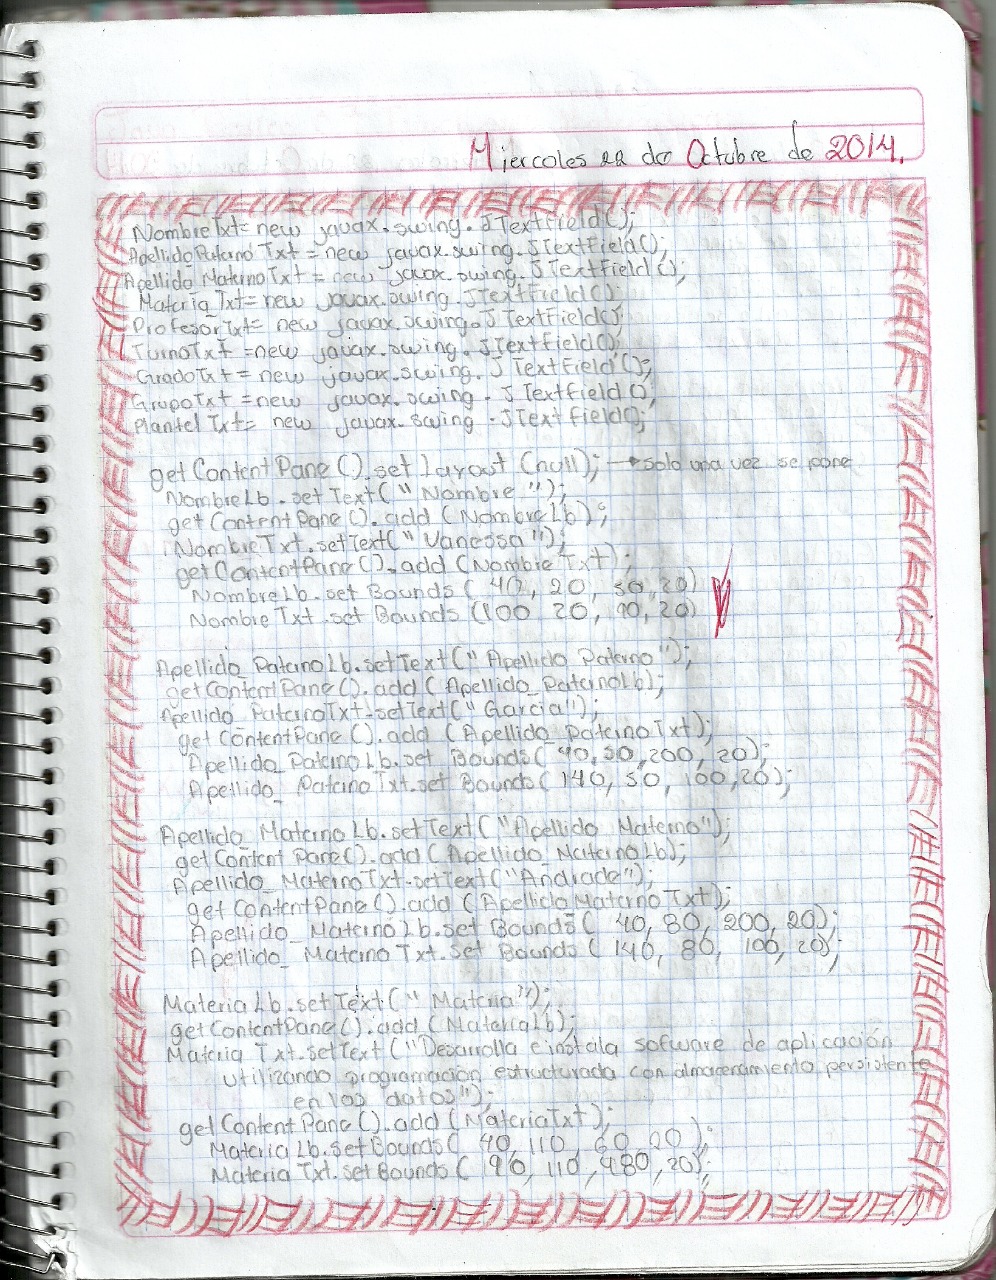 Miercoles 22 de Octubre de 2014.
NombreTxt= new javax.swing.JTextField();
Apellido_PaternoTxt = new javax.swing.JTextField();
Apellido_MaternoTxt = new javax.swing.JTextField();
Materia_Txt= new javax.swing.JTextField();
ProfesorTxt= new javax.swing.JTextField();
TurnoTxt =new javax.swing.JTextField();
GradoTxt = new javax.swing.JTextField();
GrupoTxt =new javax.swing.JTextField()
PlantelTxt= new javax.swing.JTextField();
getContentPane().setLayout (null); → solo una vez se pone
NombreLb.setText("Nombre");
getContentPane().add (NombreLb);
NombreTxt.setText("Vanessa");
getContentPane().add (NombreTxt);
NombreLb.set Bounds ( 40, 20, 50, 20)
NombreTxt.set Bounds (100 20, 90, 20)
Apellido_PaternoLb.setText("Apellido Paterno");
getContentPane().add (Apellido_PaternoLb);
Apellido_PaternoTxt.setText("Garcia");
getContentPane().add (Apellido_paternoTxt);
Apellido_PaternoLb.set Bounds( 40, 50, 200, 20);
Apellido_PaternoTxt.set Bounds( 140, 50, 100, 20);
Apellido_MaternoLb.setText("Apellido Materno");
getContentPane().add (Apellido_MaternoLb);
Apellido_MaternoTxt.setText("Andrade");
getContentPane().add (ApellidoMaternoTxt);
Apellido_MaternoLb.set Bounds ( 40, 80, 200, 20);
Apellido_MaternoTxt.set Bounds ( 140, 80, 100, 20);
MateriaLb.setText("Materia");
getContentPane().add (MateriaLb);
MateriaTxt.setText ("Desarrolla e instala sofware de aplicación
utilizando programación estructurada con almacenamiento persistente
en los datos");
getContentPane().add (MateriaTxt);
MateriaLb.setBounds ( 40, 110, 60, 20);
MateriaTxt.setBounds ( 90, 110, 480, 20);